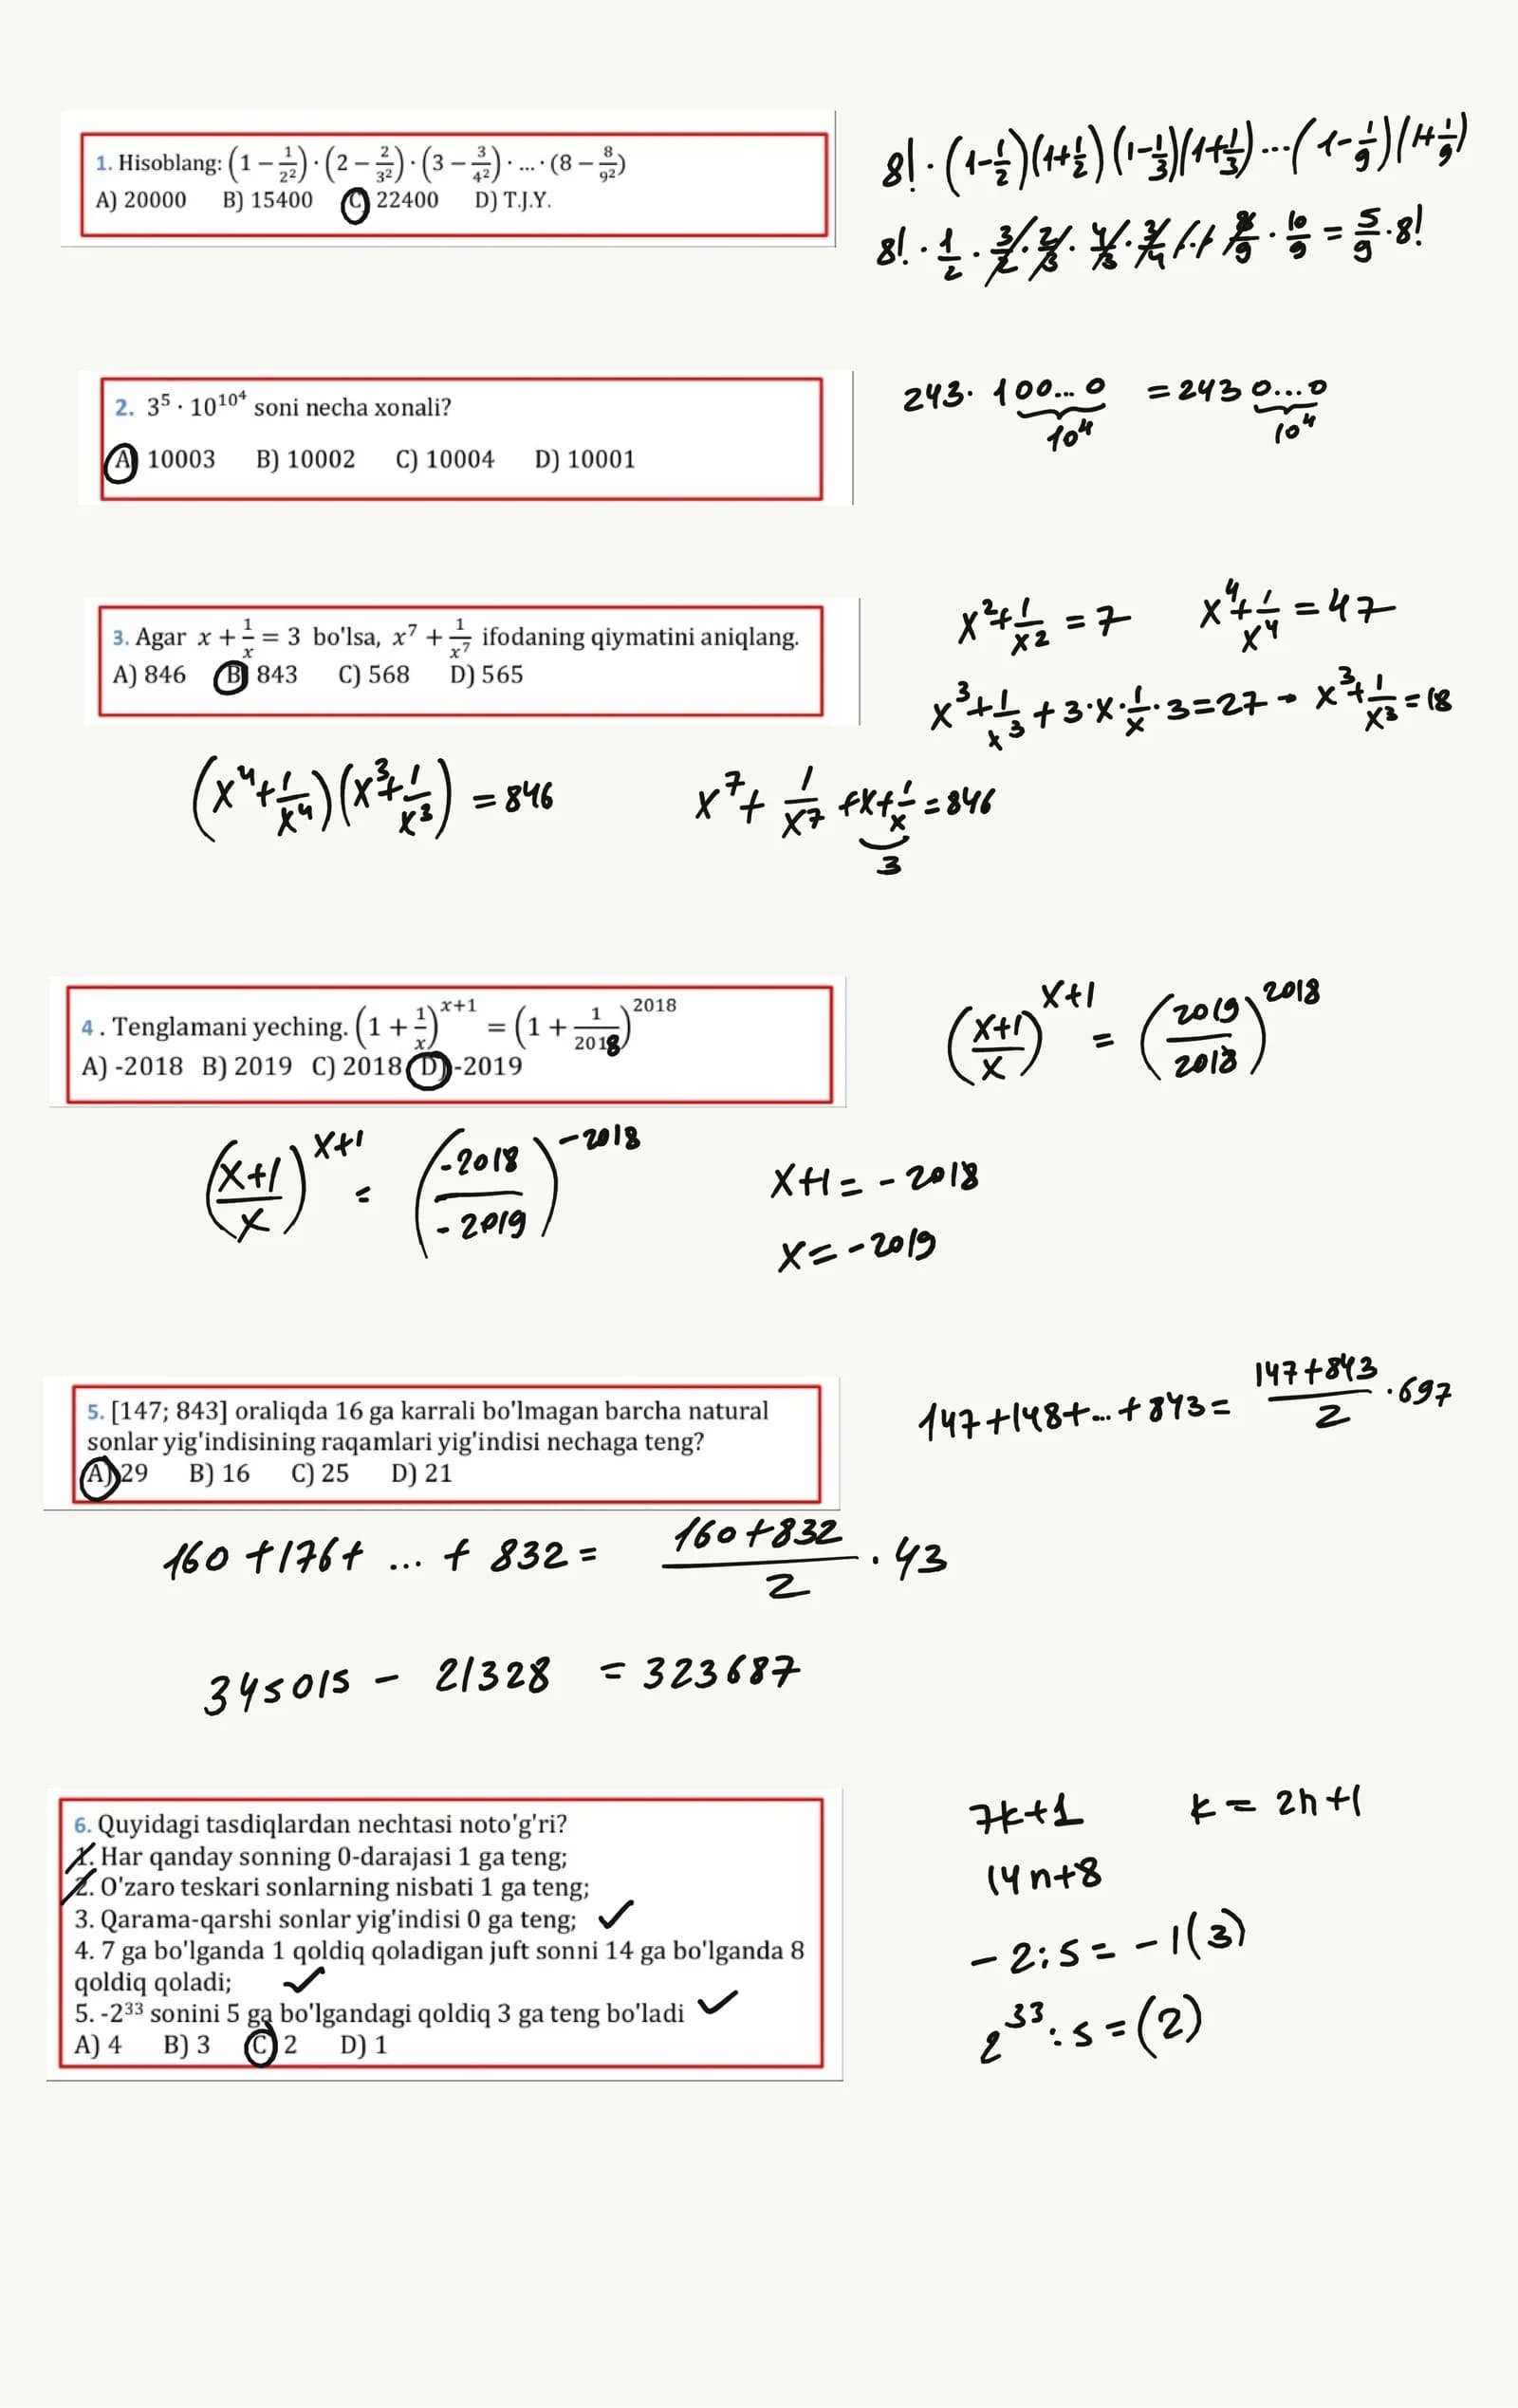 1. Hisoblang: (1 − 1/2²) · (2 − 2/3²) · (3 − 3/4²) · ... · (8 − 8/9²)
A) 20000 B) 15400 C) 22400 D) T.J.Y.
8! · (1-1/2)(1+1/2)(1-1/3)(1+1/3)...(1-1/9)(1+1/9)
8! · 1/2 · 3/2 · 2/3 · 4/3 · 3/4 ... 8/9 · 10/9 = 5/9 · 8!
2. 3⁵ · 10^10⁴ soni necha xonali?
A) 10003 B) 10002 C) 10004 D) 10001
243 · 100...0 = 2430...0
10⁴ 10⁴
3. Agar x + 1/x = 3 bo'lsa, x⁷ + 1/x⁷ ifodaning qiymatini aniqlang.
A) 846 B) 843 C) 568 D) 565
x²+1/x² = 7 x⁴+1/x⁴ = 47
x³+1/x³ + 3·x·1/x·3=27 - x³+1/x³=18
(x⁴+1/x⁴)(x³+1/x³) = 846 x⁷+ 1/x⁷ +x+1/x = 846
3
4 . Tenglamani yeching. (1 + 1/x)^(x+1) = (1 + 1/2018)^2018
A) -2018 B) 2019 C) 2018 D) -2019
((x+1)/x)^(x+1) = (2019/2018)^2018
((x+1)/x)^(x+1) = (-2018/-2019)^-2018
x+1 = - 2018
x = -2019
5. [147; 843] oraliqda 16 ga karrali bo'lmagan barcha natural
sonlar yig'indisining raqamlari yig'indisi nechaga teng?
A) 29 B) 16 C) 25 D) 21
147+148+...+843 = (147+843)/2 · 697
160 +176+ ... + 832 = (160+832)/2 · 43
345015 - 21328 = 323687
6. Quyidagi tasdiqlardan nechtasi noto'g'ri?
1. Har qanday sonning 0-darajasi 1 ga teng;
2. O'zaro teskari sonlarning nisbati 1 ga teng;
3. Qarama-qarshi sonlar yig'indisi 0 ga teng; ✓
4. 7 ga bo'lganda 1 qoldiq qoladigan juft sonni 14 ga bo'lganda 8
qoldiq qoladi; ✓
5. -2³³ sonini 5 ga bo'lgandagi qoldiq 3 ga teng bo'ladi ✓
A) 4 B) 3 C) 2 D) 1
7k+1 k = 2n+1
14n+8
-2:5 = -1(3)
2³³:5 = (2)